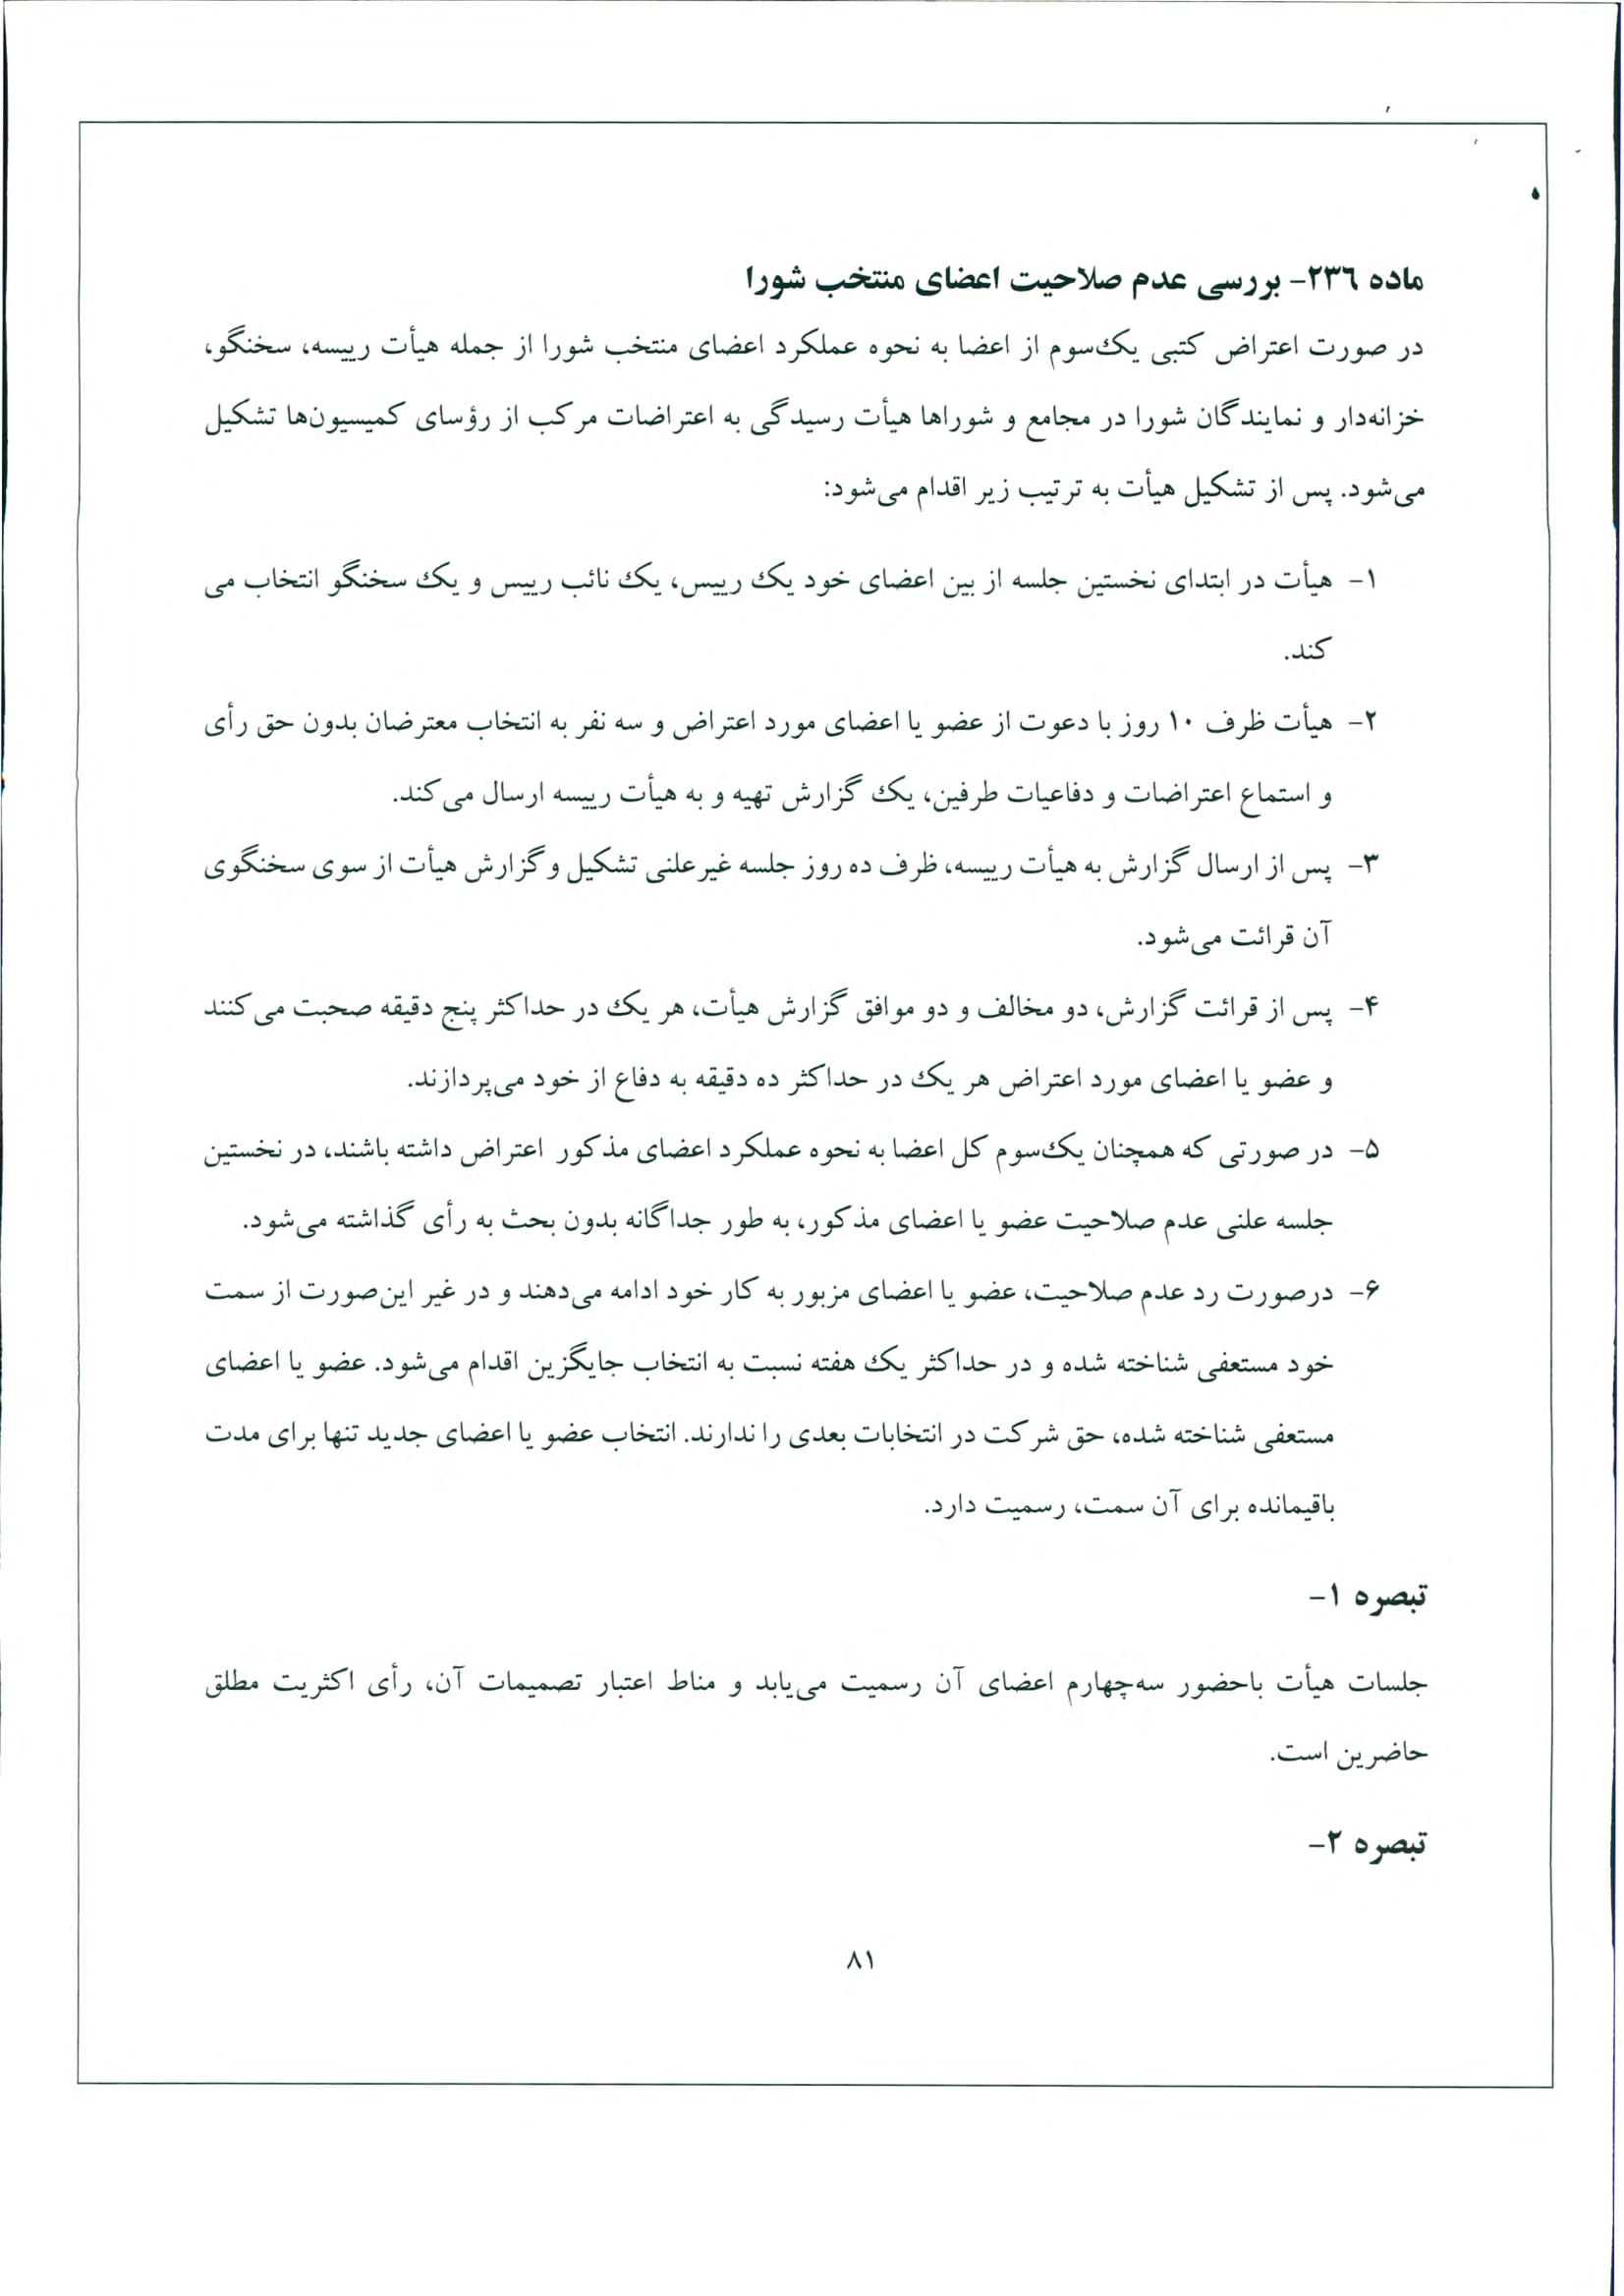 ماده ۲۳۶- بررسی عدم صلاحیت اعضای منتخب شورا
در صورت اعتراض کتبی یک‌سوم از اعضا به نحوه عملکرد اعضای منتخب شورا از جمله هیأت رییسه، سخنگو،
خزانه‌دار و نمایندگان شورا در مجامع و شوراها هیأت رسیدگی به اعتراضات مرکب از رؤسای کمیسیون‌ها تشکیل
می‌شود. پس از تشکیل هیأت به ترتیب زیر اقدام می‌شود:
۱- هیأت در ابتدای نخستین جلسه از بین اعضای خود یک رییس، یک نائب رییس و یک سخنگو انتخاب می
کند.
۲- هیأت ظرف ۱۰ روز با دعوت از عضو یا اعضای مورد اعتراض و سه نفر به انتخاب معترضان بدون حق رأی
و استماع اعتراضات و دفاعیات طرفین، یک گزارش تهیه و به هیأت رییسه ارسال می‌کند.
۳- پس از ارسال گزارش به هیأت رییسه، ظرف ده روز جلسه غیرعلنی تشکیل و گزارش هیأت از سوی سخنگوی
آن قرائت می‌شود.
۴- پس از قرائت گزارش، دو مخالف و دو موافق گزارش هیأت، هر یک در حداکثر پنج دقیقه صحبت می‌کنند
و عضو یا اعضای مورد اعتراض هر یک در حداکثر ده دقیقه به دفاع از خود می‌پردازند.
۵- در صورتی که همچنان یک‌سوم کل اعضا به نحوه عملکرد اعضای مذکور اعتراض داشته باشند، در نخستین
جلسه علنی عدم صلاحیت عضو یا اعضای مذکور، به طور جداگانه بدون بحث به رأی گذاشته می‌شود.
۶- درصورت رد عدم صلاحیت، عضو یا اعضای مزبور به کار خود ادامه می‌دهند و در غیر این‌صورت از سمت
خود مستعفی شناخته شده و در حداکثر یک هفته نسبت به انتخاب جایگزین اقدام می‌شود. عضو یا اعضای
مستعفی شناخته شده، حق شرکت در انتخابات بعدی را ندارند. انتخاب عضو یا اعضای جدید تنها برای مدت
باقیمانده برای آن سمت، رسمیت دارد.
تبصره ۱-
جلسات هیأت باحضور سه‌چهارم اعضای آن رسمیت می‌یابد و مناط اعتبار تصمیمات آن، رأی اکثریت مطلق
حاضرین است.
تبصره ۲-
۸۱